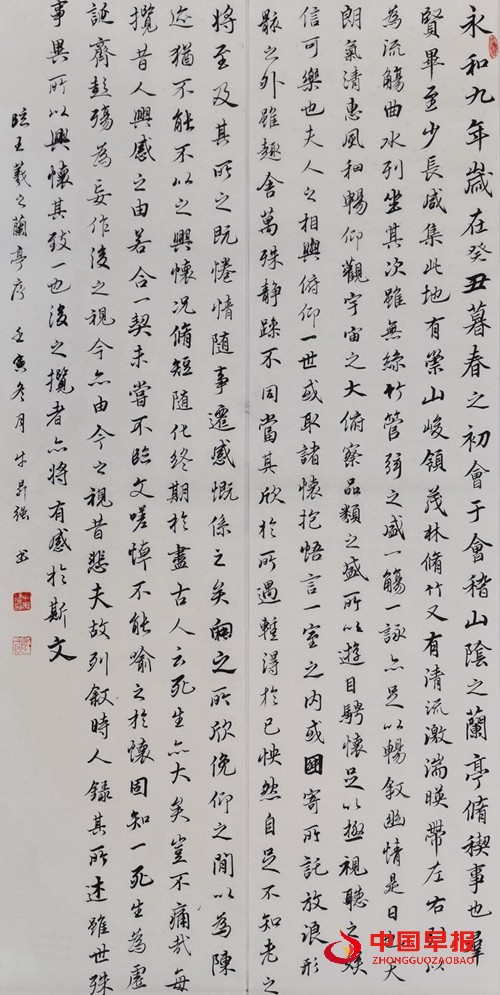 永和九年歲在癸丑暮春之初會于會稽山陰之蘭亭脩稧事也羣
賢畢至少長咸集此地有崇山峻領茂林脩竹又有清流激湍暎帶左右引以
為流觴曲水列坐其次雖無絲竹管弦之盛一觴一詠亦足以暢敘幽情是日也天
朗氣清惠風和暢仰觀宇宙之大俯察品類之盛所以遊目騁懷足以極視聽之娛
信可樂也夫人之相與俯仰一世或取諸懷抱悟言一室之內或因寄所託放浪形
骸之外雖趣舍萬殊靜躁不同當其欣於所遇蹔得於己怏然自足不知老之
將至及其所之既惓情隨事遷感慨係之矣向之所欣俛仰之間以為陳
迹猶不能不以之興懷況脩短隨化終期於盡古人云死生亦大矣豈不痛哉每
攬昔人興感之由若合一契未嘗不臨文嗟悼不能喻之於懷固知一死生為虛
誕齊彭殤為妄作後之視今亦由今之視昔悲夫故列敘時人錄其所述雖世殊
事異所以興懷其致一也後之攬者亦將有感於斯文
臨王羲之蘭亭序 壬寅冬月牛昇强書
中国早报
ZHONGGUOZAOBAO